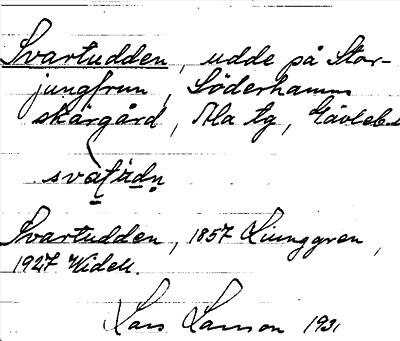 Svartudden, udde på Stor-
jungfrun, Söderhamns
skärgård, Ala tg, Gävleb.l
Svartudden, 1857 Ljunggren,
1927 Widell.
Lars Larson 1931